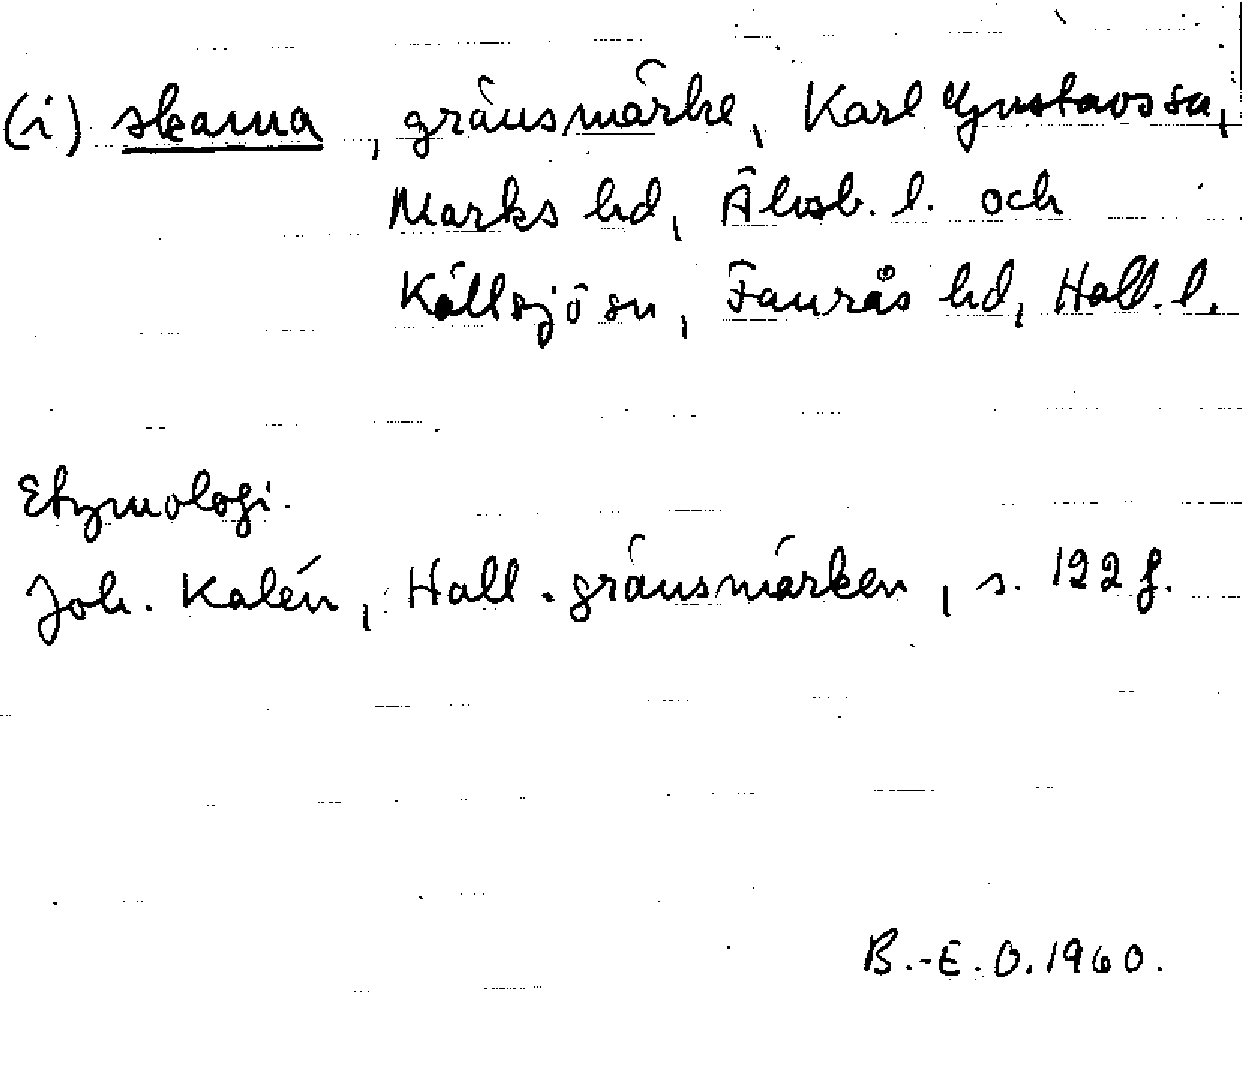 (i) skarna, gränsmärke, Karl Gustavs sn,
Marks hd, Älvsb. l. och
Källsjö sn, Faurås hd, Hall. l.
Etymologi.
Joh. Kalén, Hall. gränsmärken, s. 122 f.
B.-E. O. 1960.